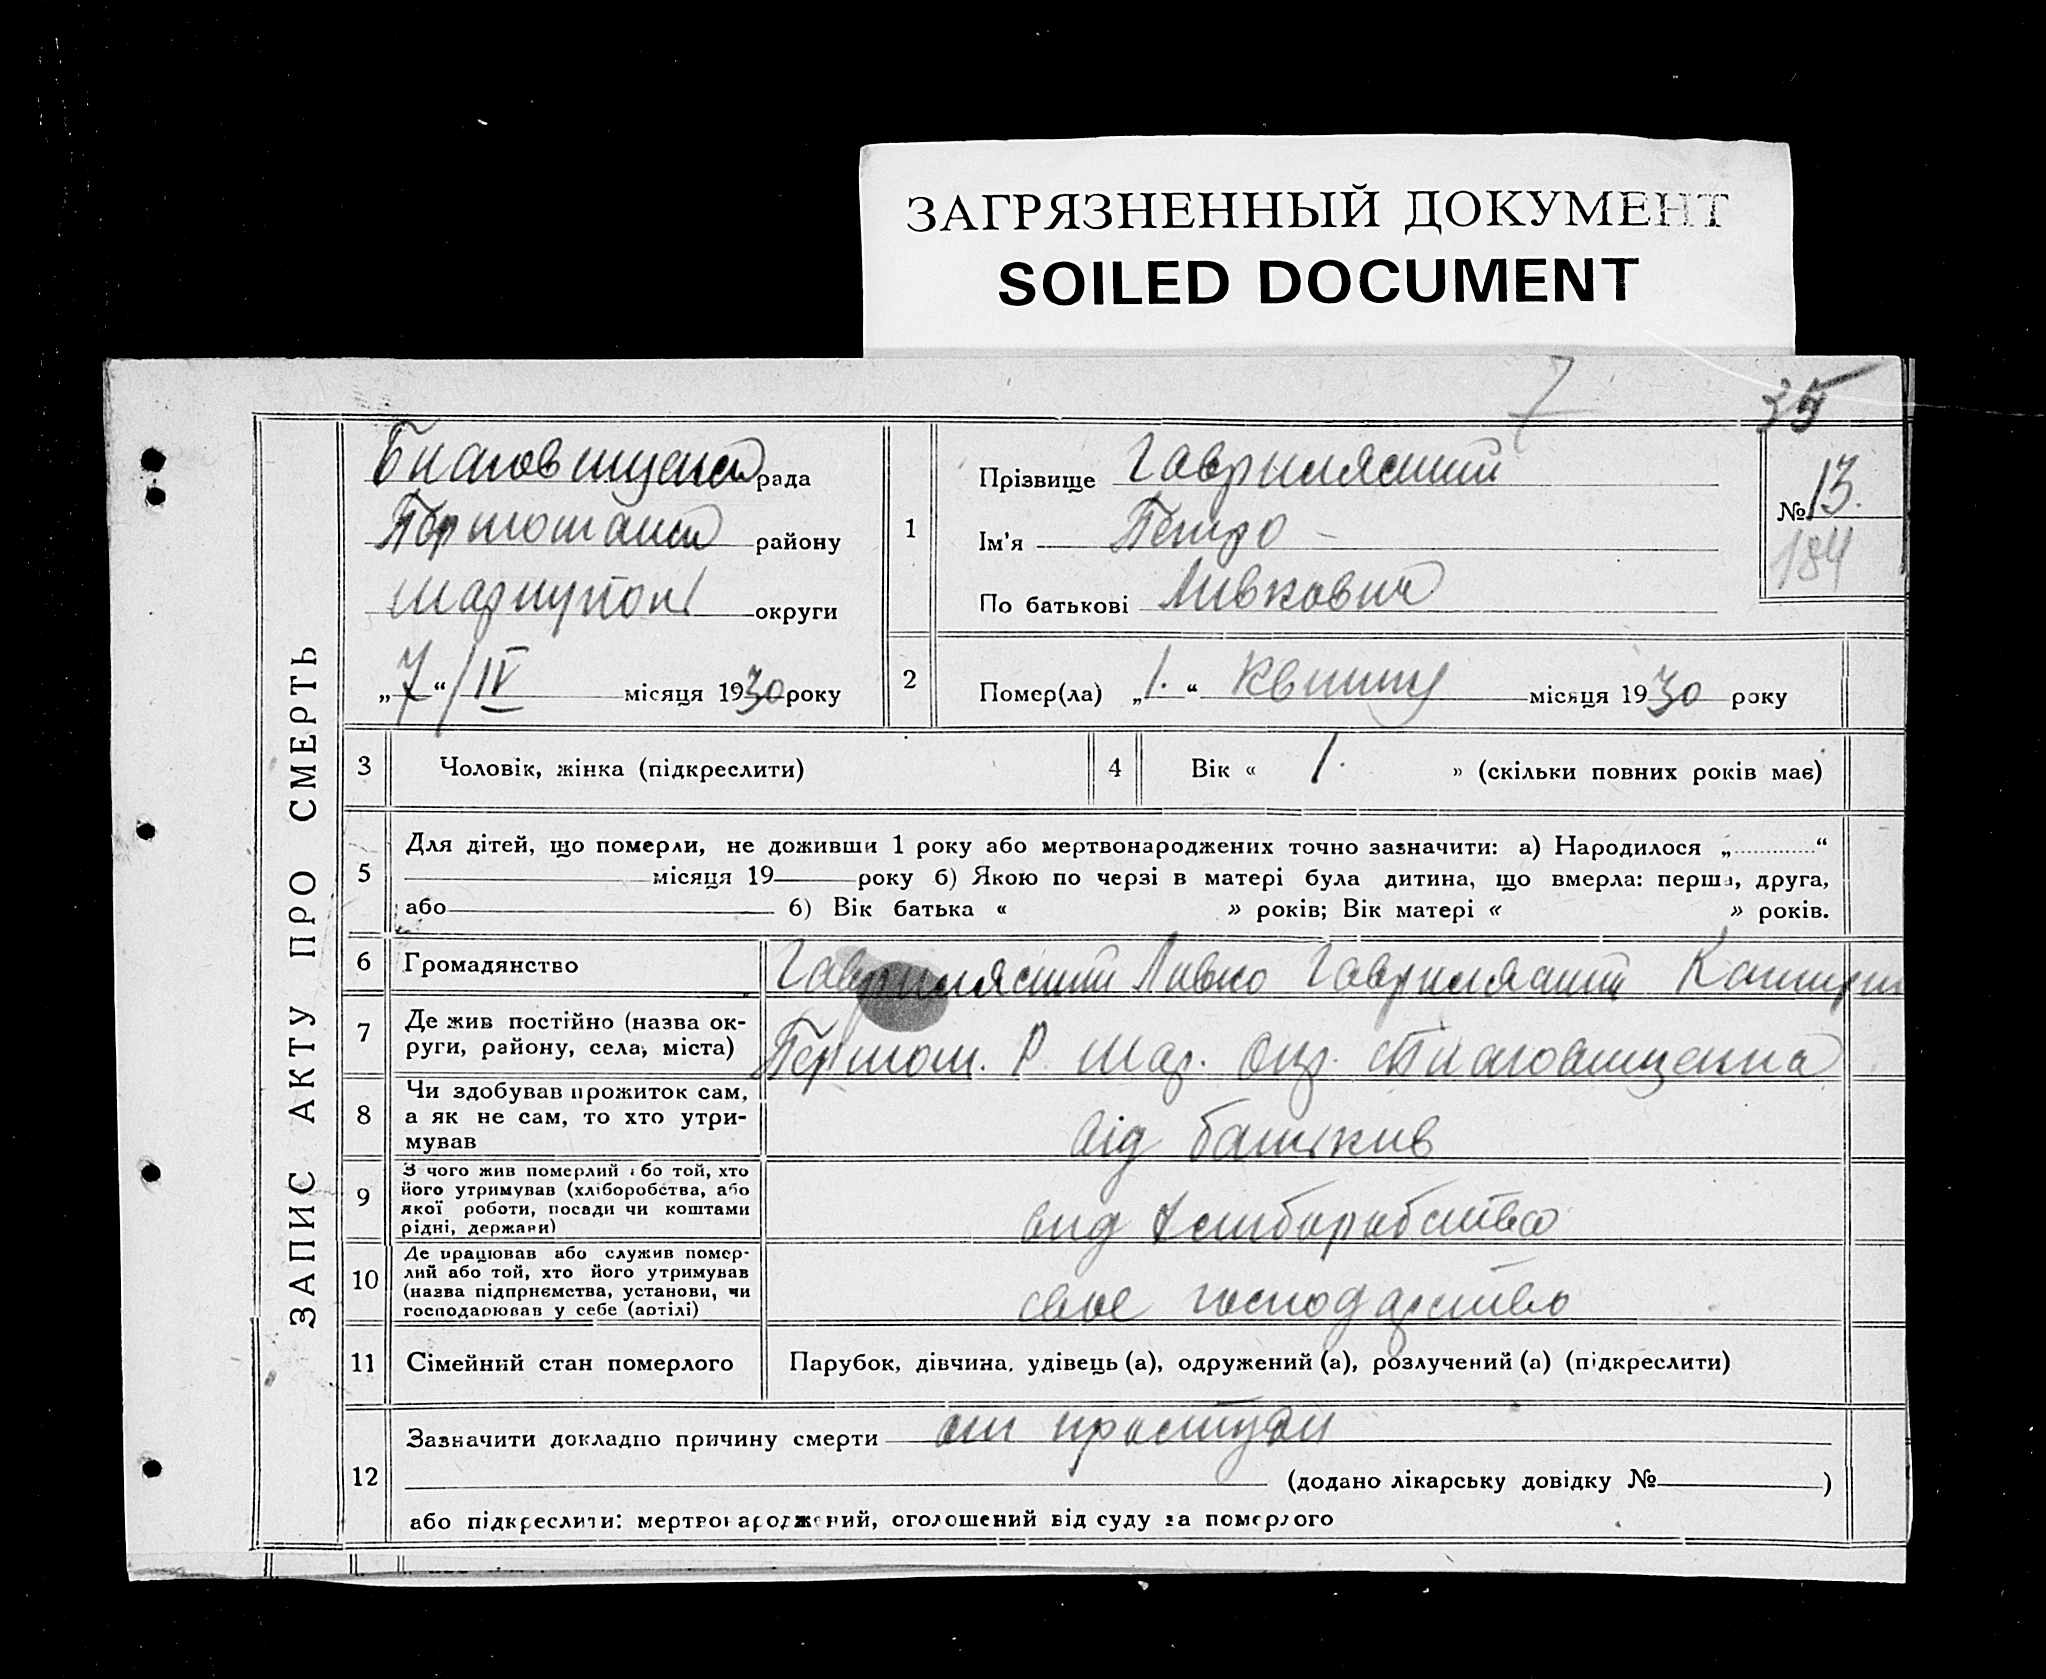 ЗАГРЯЗНЕННЫЙ ДОКУМЕНТ
SOILED DOCUMENT
7
35
ЗАПИС АКТУ ПРО СМЕРТЬ
рада
району
округи
„7“ / IV місяця 1930 року
1
Прізвище
Ім'я Петро
По батькові Ливкович
№ 13.
184
2
Помер(ла) „1.“ квитня місяця 1930 року
3
Чоловік, жінка (підкреслити)
4
Вік « 1. » (скільки повних років має)
5
Для дітей, що померли, не доживши 1 року або мертвонароджених точно зазначити: а) Народилося „ “
місяця 19 року б) Якою по черзі в матері була дитина, що вмерла: перша, друга,
або б) Вік батька « » років; Вік матері « » років.
6
Громадянство
Ливко
7
Де жив постійно (назва ок-
руги, району, села, міста)
Р. Мар. Окр.
8
Чи здобував прожиток сам,
а як не сам, то хто утри-
мував
від батькив
9
З чого жив померлий або той, хто
його утримував (хліборобства, або
якої роботи, посади чи коштами
рідні, держави)
вид хлиборобства
10
Де працював або служив помер-
лий або той, хто його утримував
(назва підприємства, установи, чи
господарював у себе (артілі)
свое господарство
11
Сімейний стан померлого
Парубок, дівчина, удівець (а), одружений (а), розлучений (а) (підкреслити)
12
Зазначити докладно причину смерти от простуди
(додано лікарську довідку № )
або підкреслити: мертвонароджений, оголошений від суду за померлого